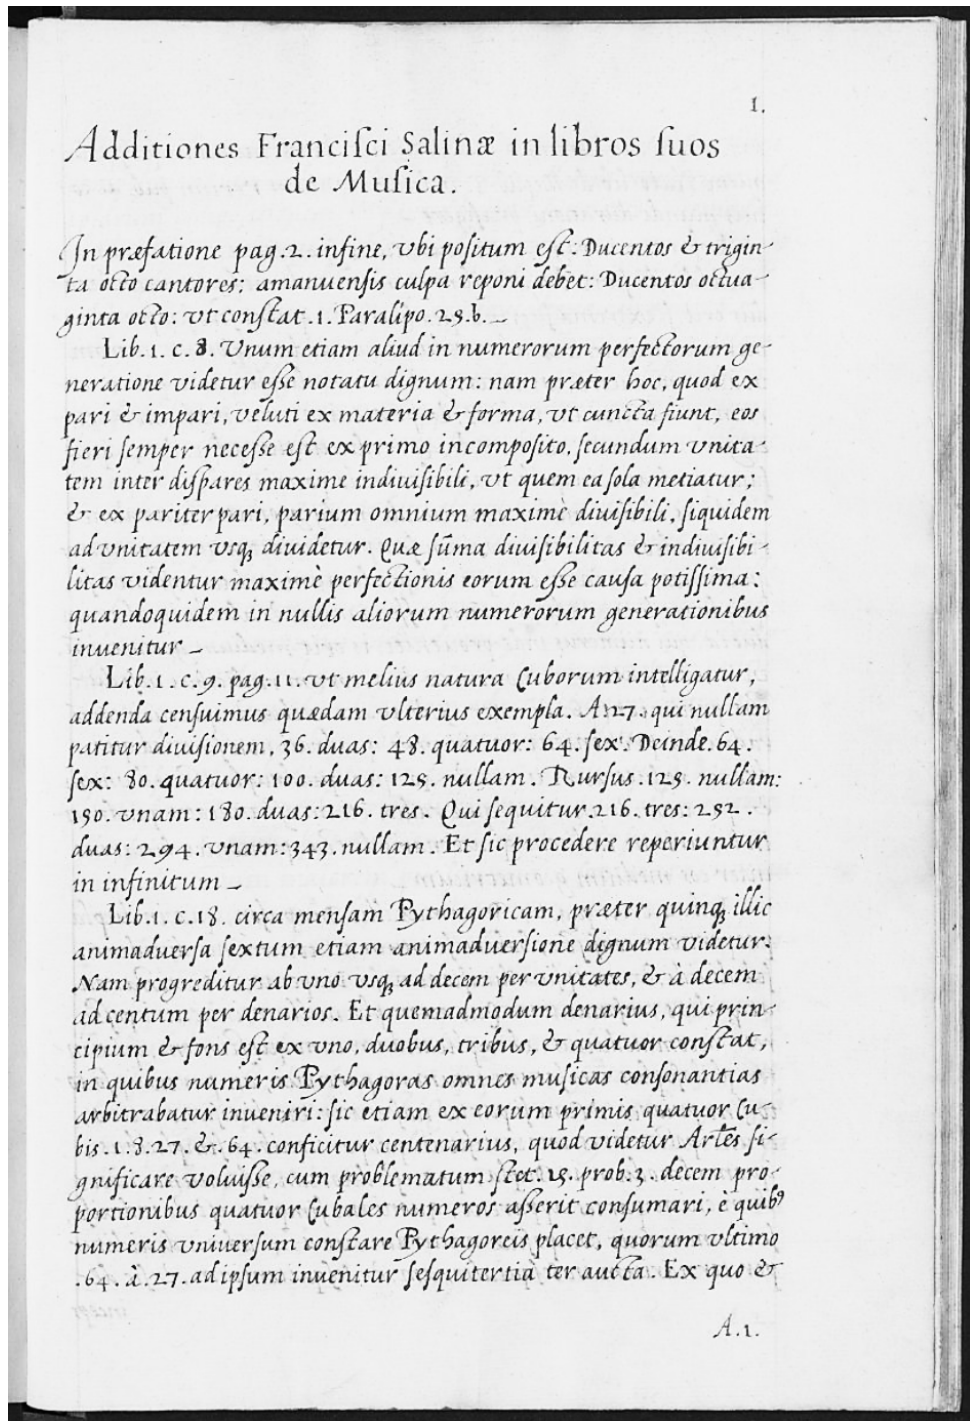 1.
Additiones Francisci Salinæ in libros suos
de Musica.
In præfatione pag. 2. in fine, vbi positum est: Ducentos & trigin-
ta octo cantores: amanuensis culpa reponi debet: Ducentos octua-
ginta octo: vt constat. 1. Paralipo. 25. b. _
Lib. 1. c. 8. Vnum etiam aliud in numerorum perfectorum ge-
neratione videtur esse notatu dignum: nam præter hoc, quod ex
pari & impari, veluti ex materia & forma, vt cuncta fiunt, eos
fieri semper necesse est ex primo incomposito, secundum vnita-
tem inter dispares maxime indiuisibili, vt quem ea sola metiatur;
& ex pariter pari, parium omnium maximè diuisibili, siquidem
ad vnitatem vsq; diuidetur. Quæ sũma diuisibilitas & indiuisibi-
litas videntur maximè perfectionis eorum esse causa potissima:
quandoquidem in nullis aliorum numerorum generationibus
inuenitur _
Lib. 1. c. 9. pag. 11. vt melius natura Cuborum intelligatur,
addenda censuimus quædam vlterius exempla. A. 27. qui nullam
patitur diuisionem, 36. duas: 48. quatuor: 64. sex. Deinde. 64.
sex: 80. quatuor: 100. duas: 125. nullam. Rursus. 125. nullam:
150. vnam: 180. duas: 216. tres. Qui sequitur. 216. tres: 252.
duas: 294. vnam: 343. nullam. Et sic procedere reperiuntur
in infinitum _
Lib. 1. c. 18. circa mensam Pythagoricam, præter quinq; illic
animaduersa sextum etiam animaduersione dignum videtur.
Nam progreditur ab vno vsq; ad decem per vnitates, & à decem
ad centum per denarios. Et quemadmodum denarius, qui prin-
cipium & fons est ex vno, duobus, tribus, & quatuor constat,
in quibus numeris Pythagoras omnes musicas consonantias
arbitrabatur inueniri: sic etiam ex eorum primis quatuor Cu-
bis. 1. 8. 27. &. 64. conficitur centenarius, quod videtur Arles si-
gnificare voluisse, cum problematum sect. 15. prob. 3. decem pro
portionibus quatuor Cubales numeros asserit consumari, è quibꝰ
numeris vniuersum constare Pythagoreis placet, quorum vltimo
. 64. à. 27. ad ipsum inuenitur sesquitertia ter aucta. Ex quo &
A. 1.